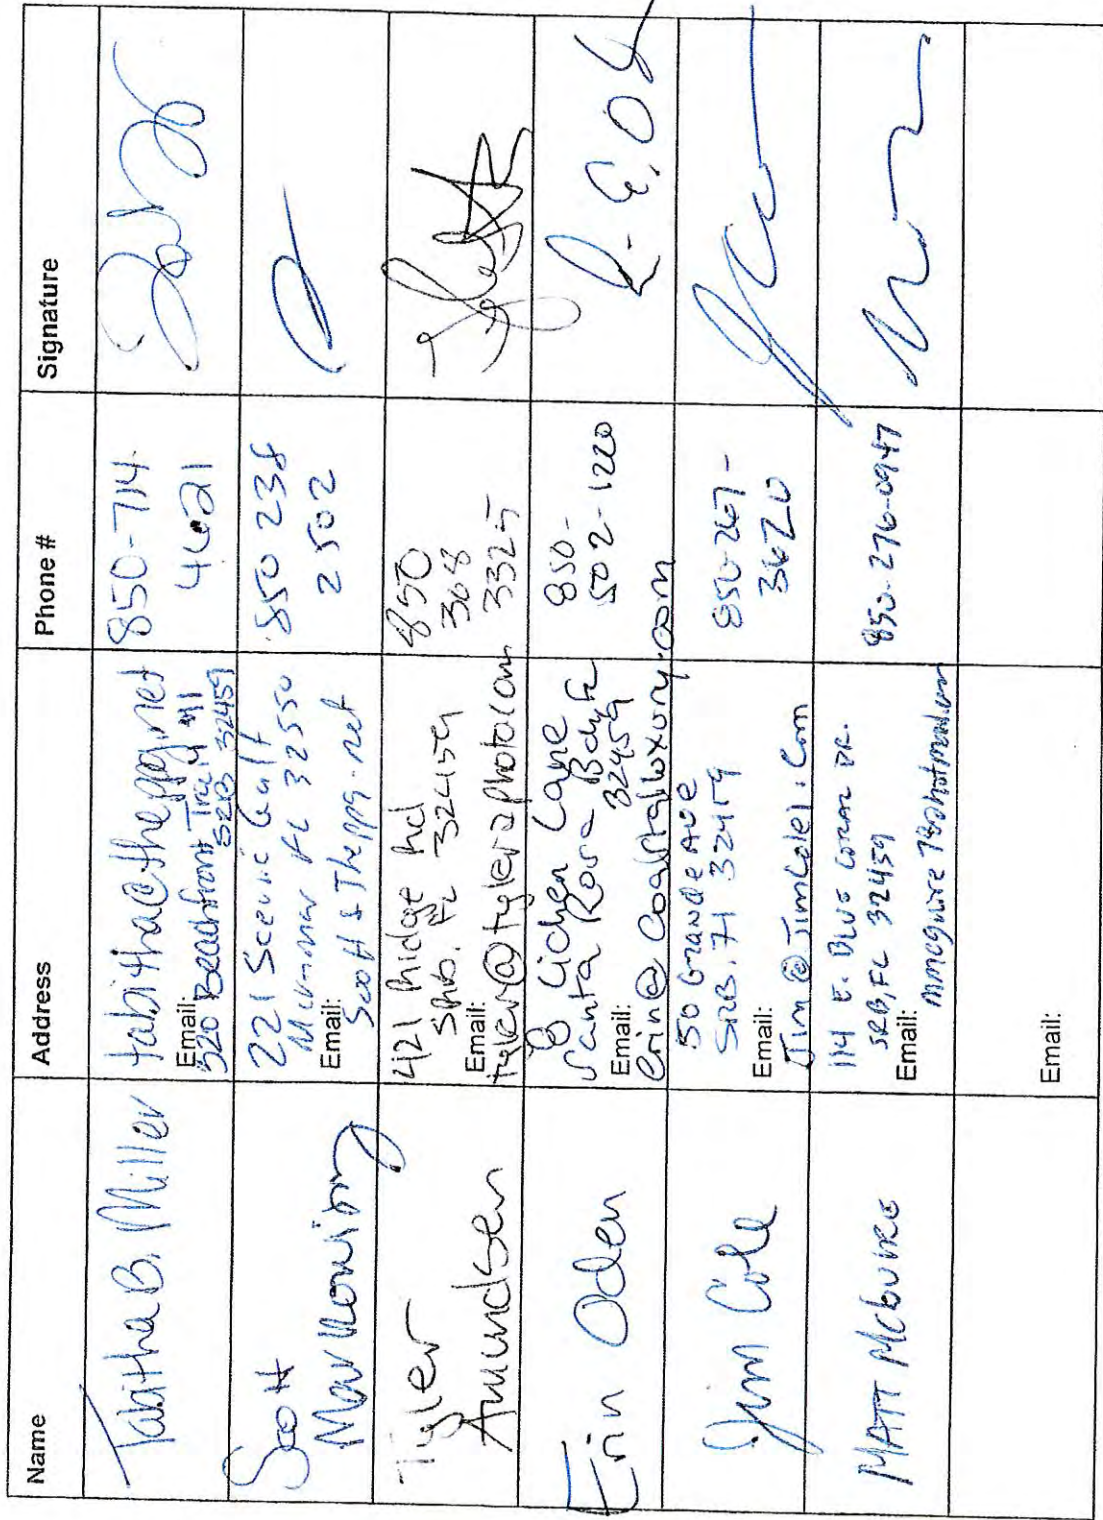 Name Address Phone # Signature
Tabitha B. Miller
tabitha@theppg.net
Email:
520 Beachfront Trail #11
SRB 32459
850-714-
4621
Scott
221 Scenic Gulf
Miramar FL 32550
Email:
850 238
2502
Tyler
Amundsen
421 Ridge Rd
SRB. FL 32459
Email:
850
368
3325
Erin Oden
Lichen Lane
Santa Rosa Bch, FL
32459
Email:
erin@coastalluxury.com
850-
502-1220
R. E. Od
Jim Cole
50 Grande Ave
SRB. Fl 32459
Email:
Jim@JimCole1.com
850-267-
3620
MATT
114 E. Blue Coral DR.
SRB, FL 32459
Email:
850-276-0947
Email: